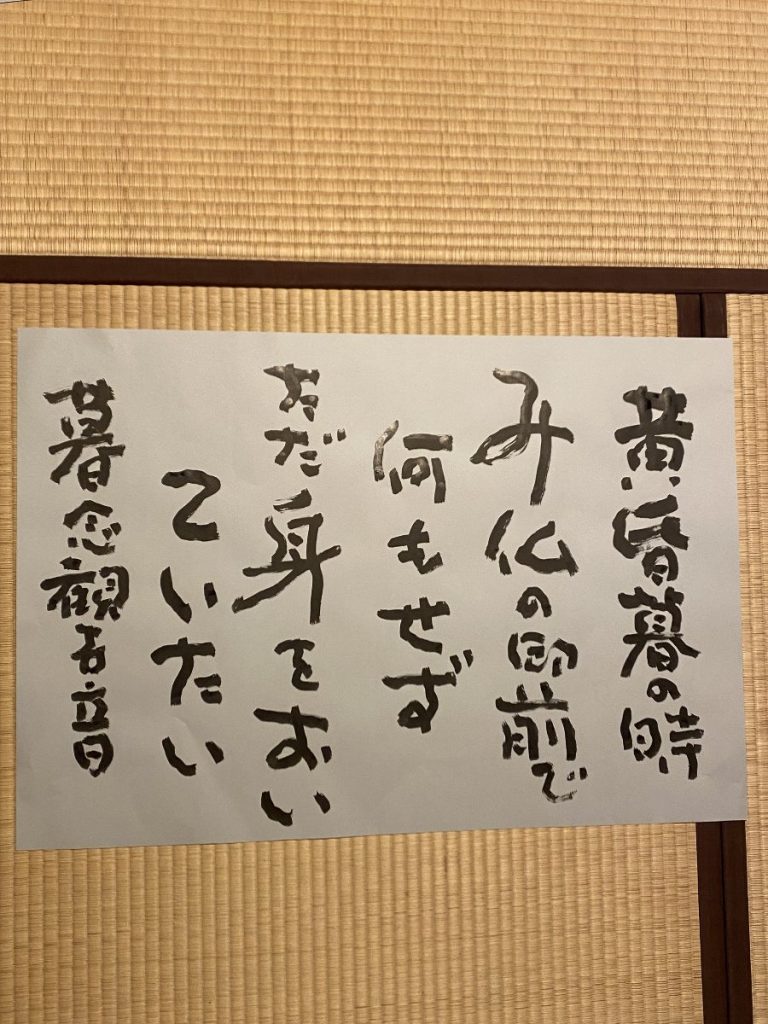 黄昏暮の時
み仏の御前で
何もせず
ただ身をおい
ていたい
暮念観世音